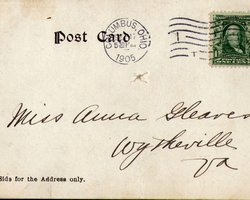 Post Card
COLUMBUS, OHIO
1905
Miss Anna Gleaves
Wytheville
Va
Side for the Address only.